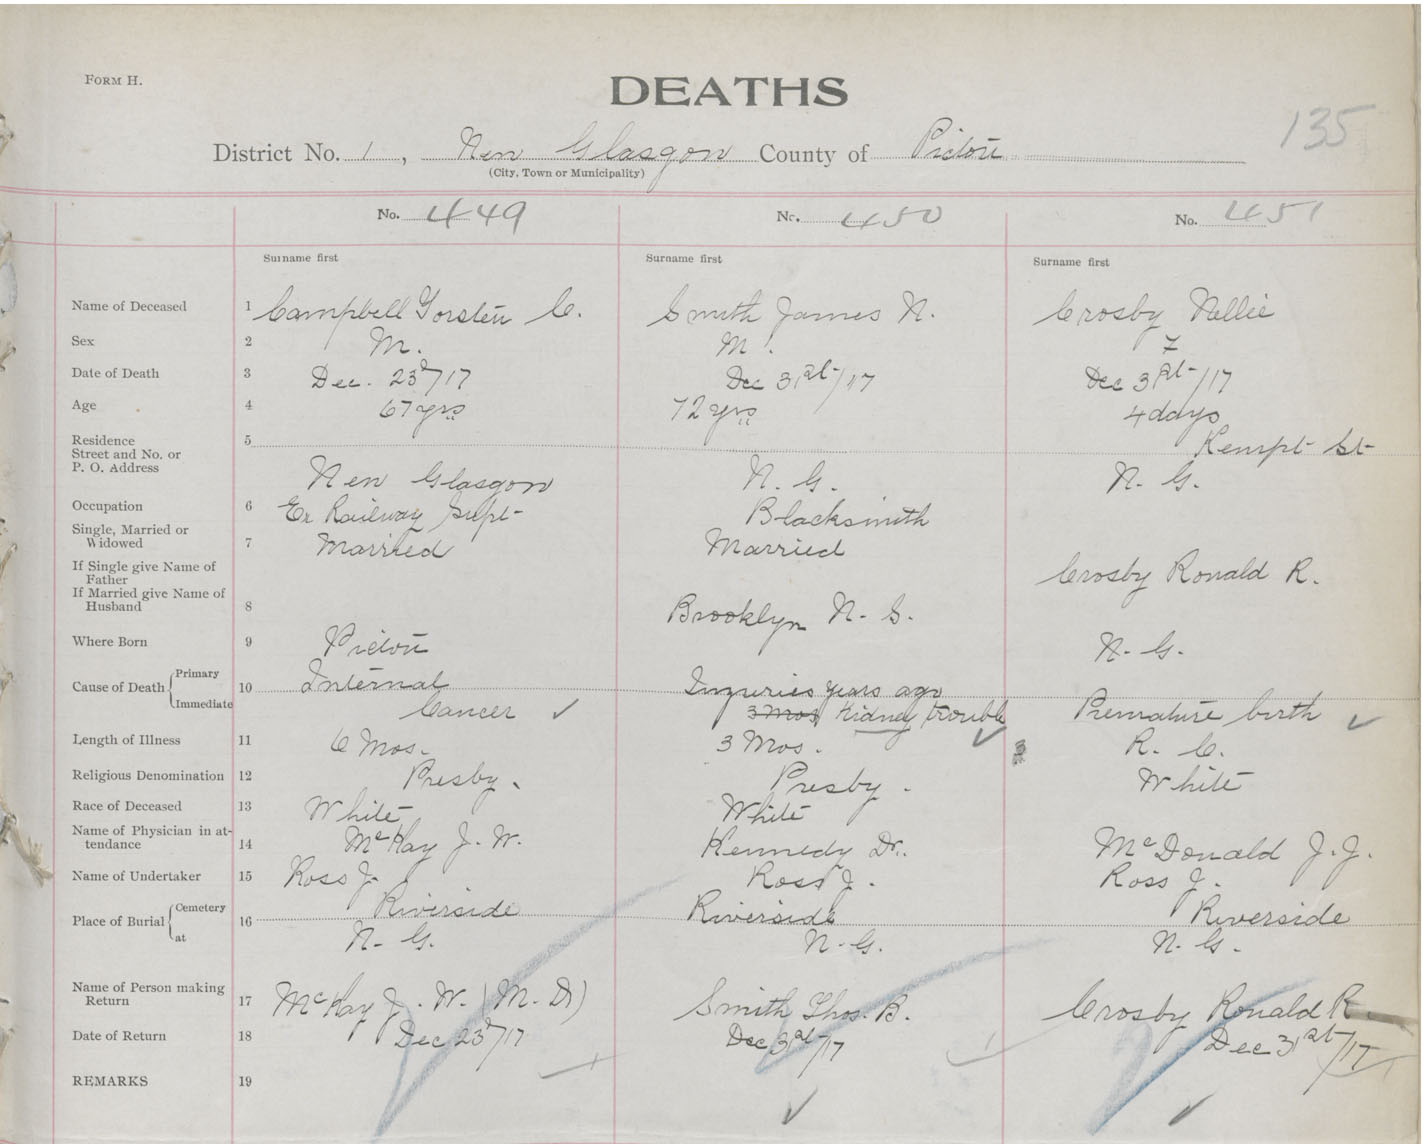 FORM H.
DEATHS
135
District No. 1, New Glasgow County of Pictou
(City, Town or Municipality)
No. 449 No. 450 No. 451
Surname first Surname first Surname first
Name of Deceased 1 Campbell Torsten C. Smith James N. Crosby Nellie
Sex 2 M. M. F
Date of Death 3 Dec. 23d/17 Dec 31st/17 Dec 31st/17
Age 4 67 yrs 72 yrs 4 days
Residence 5 Kempt St
Street and No. or
P. O. Address New Glasgow N. G. N. G.
Occupation 6 Ex Railway Supt Blacksmith
Single, Married or
Widowed 7 Married Married
If Single give Name of
Father Crosby Ronald R.
If Married give Name of
Husband 8 Brooklyn N. S.
Where Born 9 Pictou N. G.
Cause of Death Primary 10 Internal Injuries years ago
Immediate Cancer 3 Mos Kidney trouble Premature birth
Length of Illness 11 6 Mos. 3 Mos. R. C.
Religious Denomination 12 Presby. Presby. White
Race of Deceased 13 White White
Name of Physician in at-
tendance 14 McKay J. W. Kennedy Dr. McDonald J. J.
Name of Undertaker 15 Ross J. Ross J. Ross J.
Place of Burial Cemetery 16 Riverside Riverside Riverside
at N. G. N. G. N. G.
Name of Person making
Return 17 McKay J. W. (M. D) Smith Thos. B. Crosby Ronald R.
Date of Return 18 Dec 23d/17 Dec 31st/17 Dec 31st/17
REMARKS 19